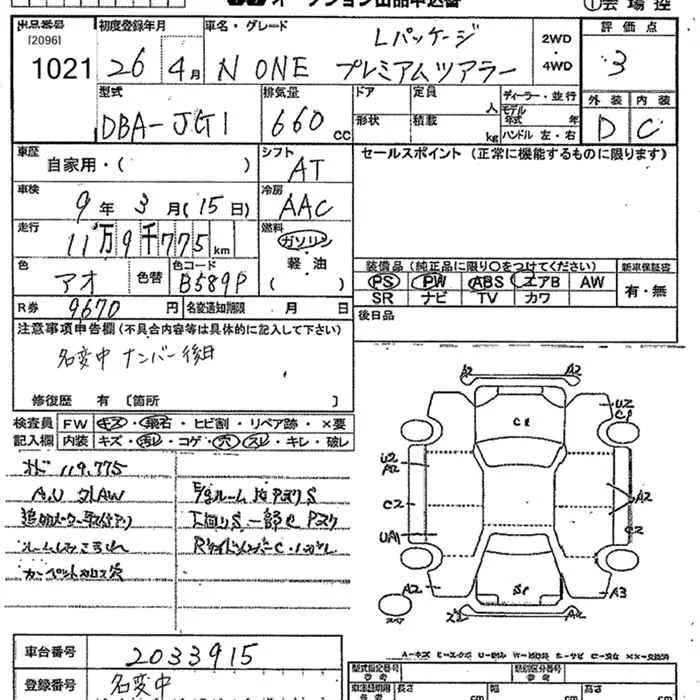 オークション出品申込書
①会場控
出品番号 初度登録年月 車名・グレード 評価点
[2096]
1021 26年 4月 N ONE Lパッケージ プレミアムツアラー 2WD・4WD 3
型式 排気量 ドア 定員 人 ディーラー・並行 外装 内装
モデル年式 年
DBA-JG1 660cc 形状 積載 kg ハンドル 左・右 D C
車歴 自家用・( ) シフト AT セールスポイント(正常に機能するものに限ります)
車検 9年 3月(15日) 冷房 AAC
走行 11万9千775km 燃料 ガソリン 軽・油 ( )
色 アオ 色替 色コード B589P
装備品(純正品に限り○をつけてください) 新車保証書
PS PW ABS エアB AW 有・無
SR ナビ TV カワ
R券 9670円 名変通知期限 月 日 後日品
注意事項申告欄(不具合内容等は具体的に記入して下さい)
名変中 ナンバー後日
修復歴 有 〔箇所 〕
検査員 FW キズ・飛石・ヒビ割・リペア跡・×要
記入欄 内装 キズ・汚レ・コゲ・穴・スレ・キレ・破レ
119.775
A2 A2
U2
C1
C1
U2
A2
C2 A2
UA1 C2
A2 S1 A3
スペア
A-キズ E-エクボ U-凹み
車台番号 2033915
登録番号 名変中
型式指定番号 参考 類別区分番号 参考
長さ cm 幅 cm 高さ cm